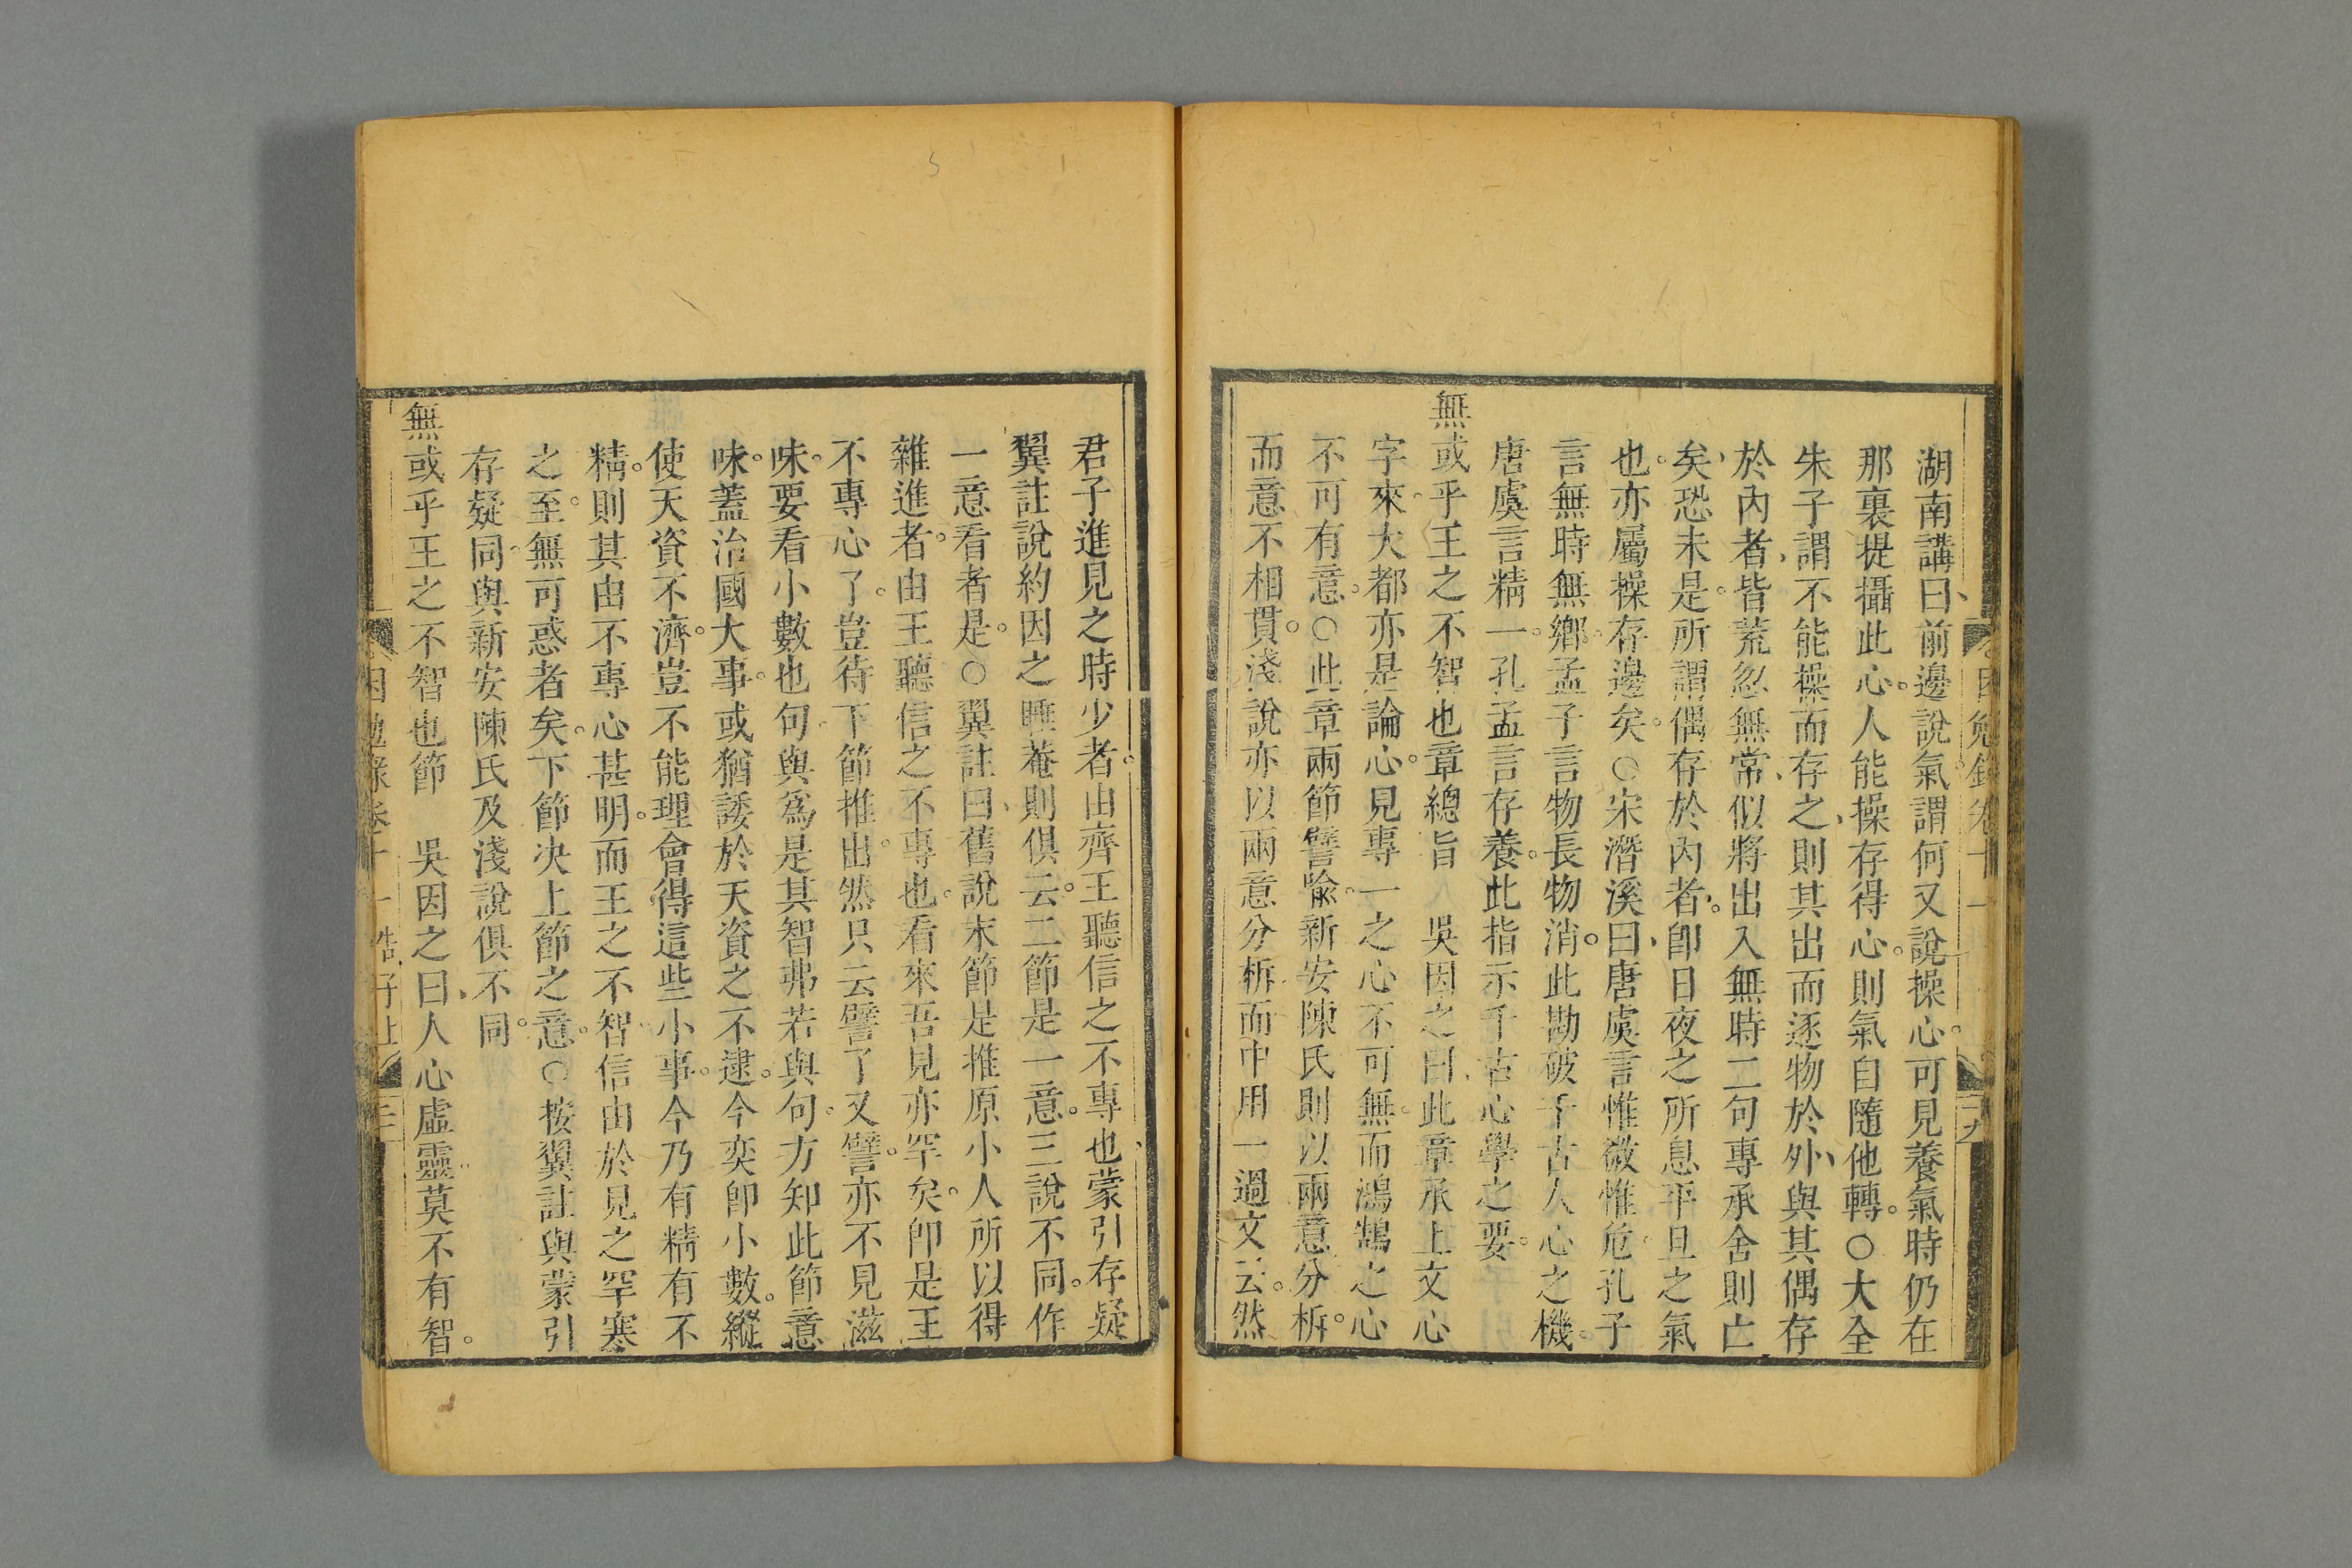 湖南講曰前邊說氣謂何又說操心可見養氣時仍在
那裏提攝此心人能操存得心則氣自隨他轉○大全
朱子謂不能操而存之則其出而逐物於外與其偶存
於內者皆荒忽無常似將出入無時二句專承舍則亡
矣恐未是所謂偶存於內者卽日夜之所息平旦之氣
也亦屬操存邊矣○宋潛溪曰唐虞言惟微惟危孔子
言無時無鄉孟子言物長物消此勘破千古人心之機
唐虞言精一孔孟言存養此指示千古心學之要
無或乎王之不智也章總旨 吳因之曰此章承上文心
字來大都亦是論心見專一之心不可無而鴻鵠之心
不可有意○此章兩節譬喩新安陳氏則以兩意分柝
而意不相貫淺說亦以兩意分柝而中用一過文云然
君子進見之時少者由齊王聽信之不專也蒙引存疑
翼註說約因之睡菴則俱云二節是一意三說不同作
一意看者是○翼註曰舊說末節是推原小人所以得
雜進者由王聽信之不專也看來吾見亦罕矣卽是王
不專心了豈待下節推出然只云譬了又譬亦不見滋
味要看小數也句與爲是其智弗若與句方知此節意
味蓋治國大事或猶諉於天資之不逮今奕卽小數縱
使天資不濟豈不能理會得這些小事今乃有精有不
精則其由不專心甚明而王之不智信由於見之罕寒
之至無可惑者矣下節決上節之意○按翼註與蒙引
存疑同與新安陳氏及淺說俱不同
無或乎王之不智也節 吳因之曰人心虛靈莫不有智
困勉錄卷十一 告子上